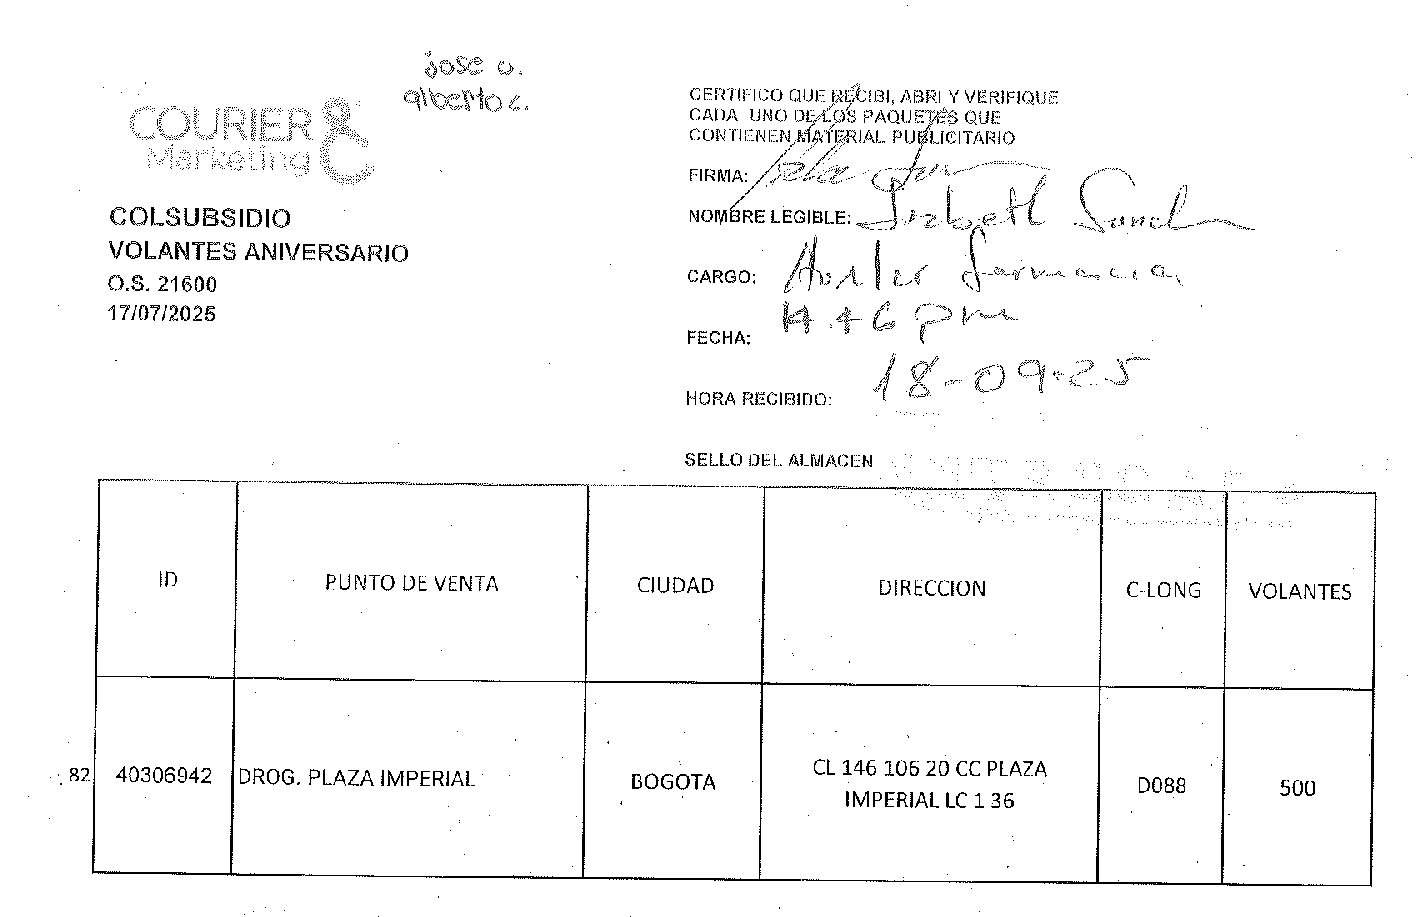 jose o.
alberto c.
COURIER
Marketing
COLSUBSIDIO
VOLANTES ANIVERSARIO
O.S. 21600
17/07/2025
CERTIFICO QUE RECIBI, ABRI Y VERIFIQUE
CADA UNO DE LOS PAQUETES QUE
CONTIENEN MATERIAL PUBLICITARIO
FIRMA:
NOMBRE LEGIBLE: Lizbeth
CARGO: farmacia
FECHA: pm
HORA RECIBIDO: 18-09-25
SELLO DEL ALMACEN
ID PUNTO DE VENTA CIUDAD DIRECCION C-LONG VOLANTES
82 40306942 DROG. PLAZA IMPERIAL BOGOTA CL 146 106 20 CC PLAZA IMPERIAL LC 1 36 D088 500